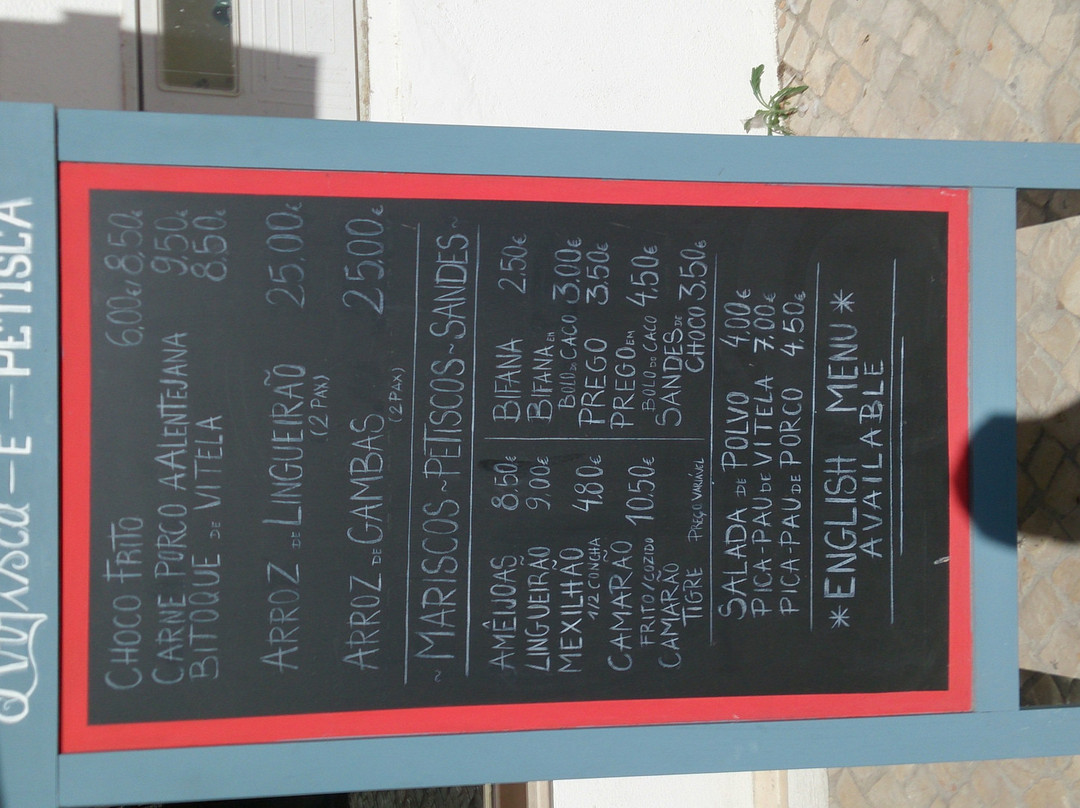 Quyisca - E - PETISCA
CHOCO FRITO 6,00€/8,50€
CARNE PORCO À ALENTEJANA 9,50€
BITOQUE DE VITELA 8.50€
ARROZ DE LINGUEIRÃO 25,00€
(2 PAX)
ARROZ DE GAMBAS 25,00€
(2 PAX)
~MARISCOS~PETISCOS~SANDES~
AMÊIJOAS 8,50€
LINGUEIRÃO 9,00€
MEXILHÃO 4.80€
1/2 CONCHA
CAMARÃO 10.50€
FRITO/COZIDO
CAMARÃO
TIGRE PREÇO VARIÁVEL
BIFANA 2,50€
BIFANA EM
BOLO DO CACO 3.00€
PREGO 3.50€
PREGO EM
BOLO DO CACO 4,50€
SANDES DE
CHOCO 3,50€
SALADA DE POLVO 4,00€
PICA-PAU DE VITELA 7,00€
PICA-PAU DE PORCO 4,50€
*ENGLISH MENU*
AVAILABLE